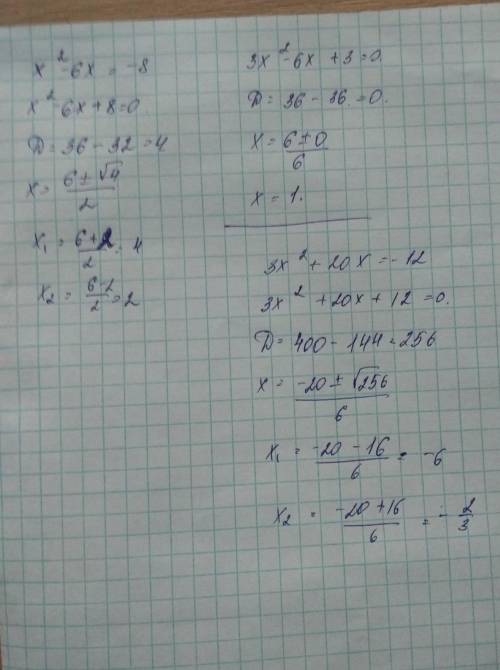 x² - 6x = -8
x² - 6x + 8 = 0
D = 36 - 32 = 4
x = (6 ± √4)/2
x₁ = (6+2)/2 = 4
x₂ = (6-2)/2 = 2
3x² - 6x + 3 = 0.
D = 36 - 36 = 0.
x = (6 ± 0)/6
x = 1.
3x² + 20x = -12
3x² + 20x + 12 = 0.
D = 400 - 144 = 256
x = (-20 ± √256)/6
x₁ = (-20 - 16)/6 = -6
x₂ = (-20 + 16)/6 = -2/3